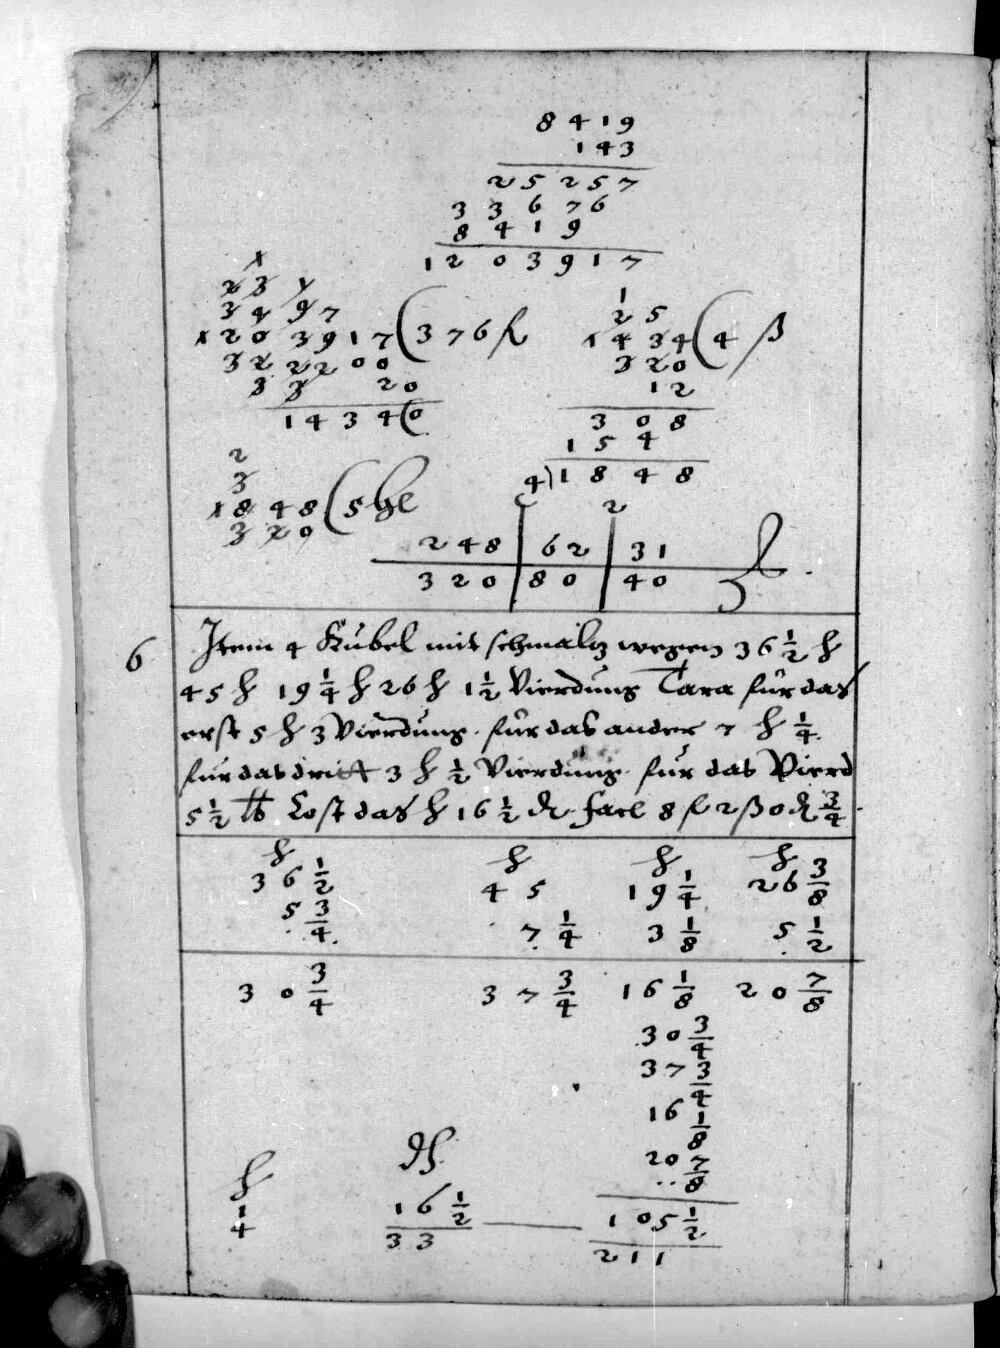 8419
143
25257
33676
8419
1203917
x
2 3 y
3 4 9 7
x20 3917(376 fl
32 22 00
3 3 20
1434(0
1
25
1434(4 ß
320
12
308
154
4)1848
2
3
x848(5 hl
320
248 | 62 | 31
320 | 80 | 40
6
Item 4 Kübel mit schmaltz wegen 36 1/2 ℔
45 ℔ 19 1/4 ℔ 26 ℔ 1 1/2 Vierdung Tara für das
erst 5 ℔ 3 Vierdung. für das ander 7 ℔ 1/4.
für das dritt 3 ℔ 1/2 Vierdung. für das Vierd
5 1/2 ℔ Cost das ℔ 16 1/2 ₰ facl 8 fl 2 ß 0 ₰ 3/4.
℔ ℔ ℔ ℔
36 1/2 45 19 1/4 26 3/8
5 3/4. 7 1/4 3 1/8 5 1/2
30 3/4 37 3/4 16 1/8 20 7/8
30 3/4
37 3/4
16 1/8
20 7/8
℔ ₰
1/4 16 1/2 — 105 1/2
33 211